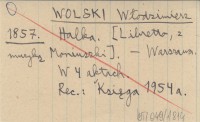 WOLSKI Włodzimierz
1857. Halka. [Libretto, z
muzyką Moniuszki]. – Warszawa.
W 4 aktach.
Rec.: Księga 1954a.